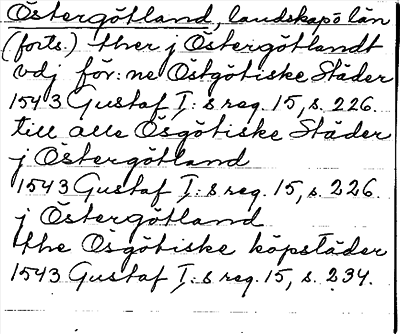 Östergötland, landskap o län
(forts.) ther j Östergötlandt
vdj för: ne Östgötiske Städer
1543 Gustaf I: s reg. 15, s. 226.
till alle Ösgötiske Städer
j Östergötland
1543 Gustaf I: s reg. 15, s. 226.
j Östergötland
the Ösgötiske köpstäder
1543 Gustaf I: s reg. 15, s. 234.